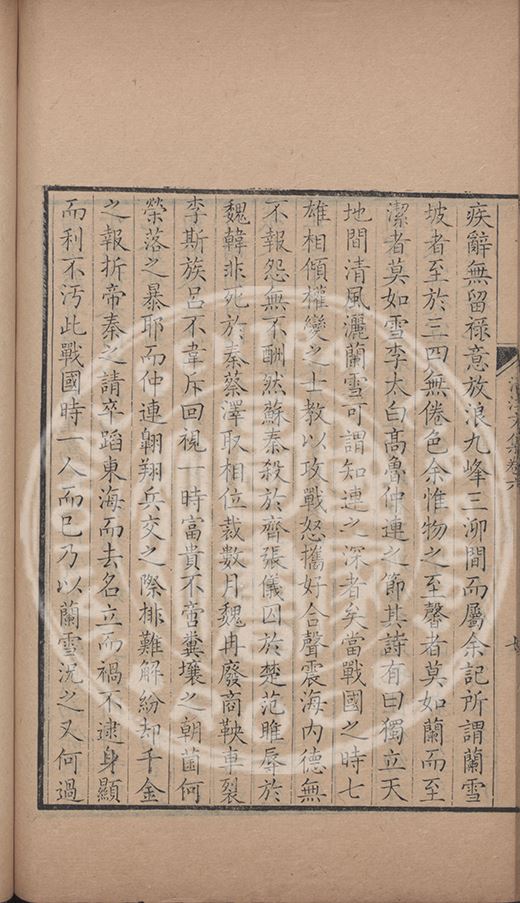 疾辭無留祿意放浪九峰三泖間而屬余記所謂蘭雪
坡者至於三四無倦色余惟物之至馨者莫如蘭而至
潔者莫如雪李太白高魯仲連之節其詩有曰獨立天
地間清風灑蘭雪可謂知連之深者矣當戰國之時七
雄相傾權變之士教以攻戰怒攜好合聲震海內德無
不報怨無不酬然蘇秦殺於齊張儀囚於楚范雎辱於
魏韓非死於秦蔡澤取相位裁數月魏冉廢商鞅車裂
李斯族呂不韋斥回視一時富貴不啻糞壤之朝菌何
榮落之暴耶而仲連翱翔兵交之際排難解紛却千金
之報折帝秦之請卒蹈東海而去名立而禍不逮身顯
而利不汚此戰國時一人而已乃以蘭雪況之又何過